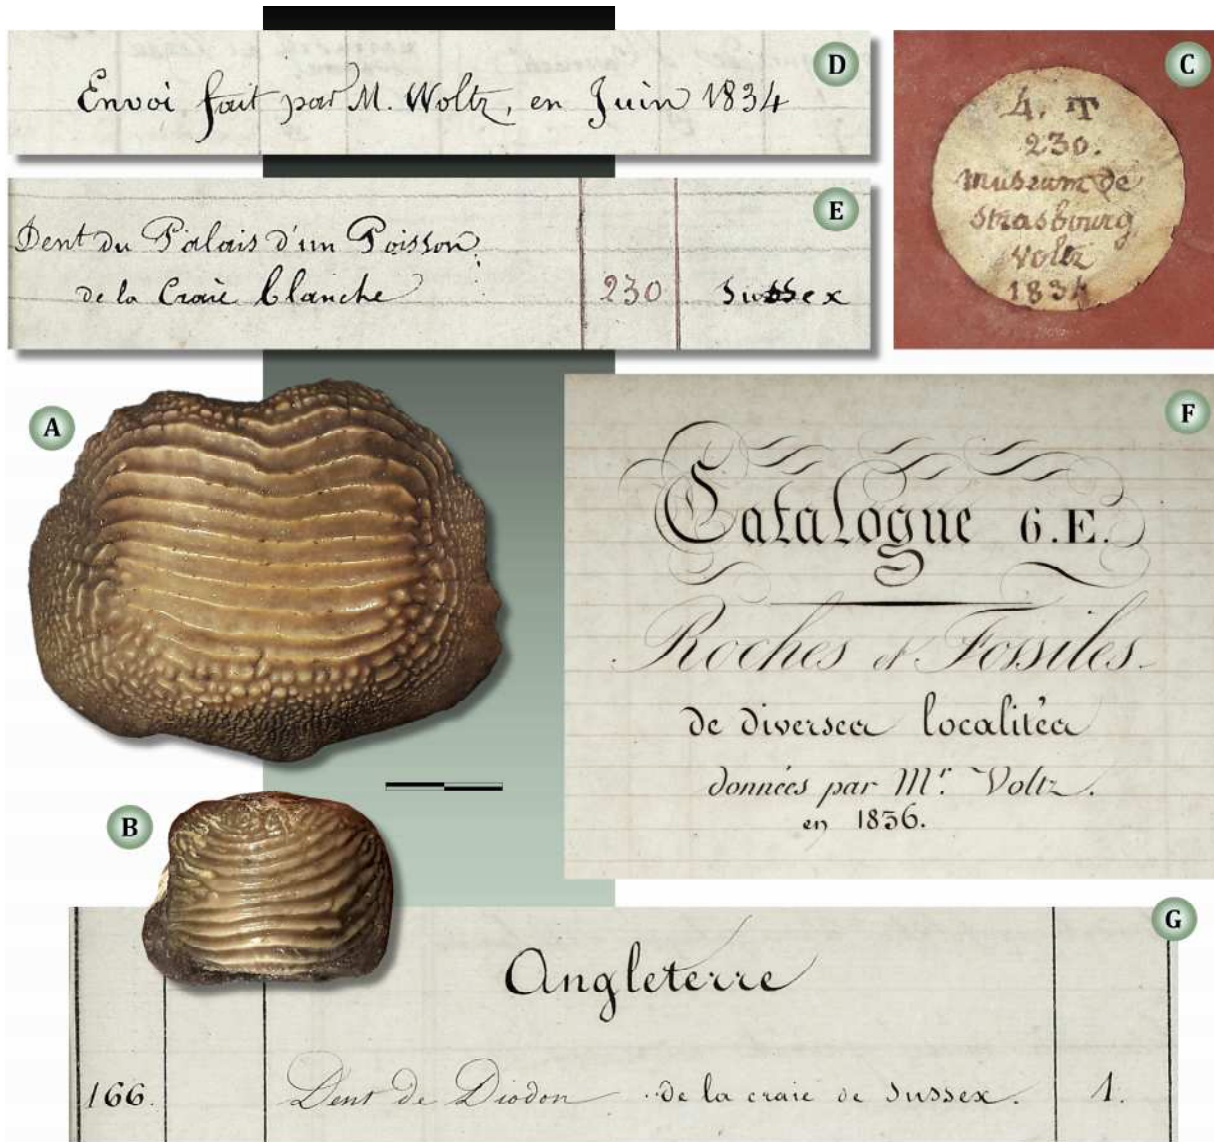 D
Envoi fait par M. Woltz, en Juin 1834
C
4. T
230.
museum de
Strasbourg
Voltz
1834
E
Dent du Palais d'un Poisson
de la Craie blanche 230 Sussex
A
F
Catalogue 6.E.
Roches et Fossiles.
de diverses localités
données par Mr. Voltz.
en 1836.
B
G
Angleterre
166. Dent de Diodon de la craie de Sussex. 1.